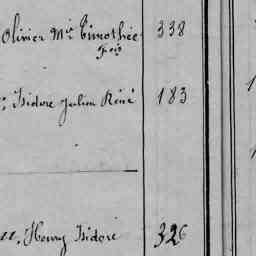 Olivier Mie Timothée 338
Fois
Isidore Julien René 183
Henry Isidore 326